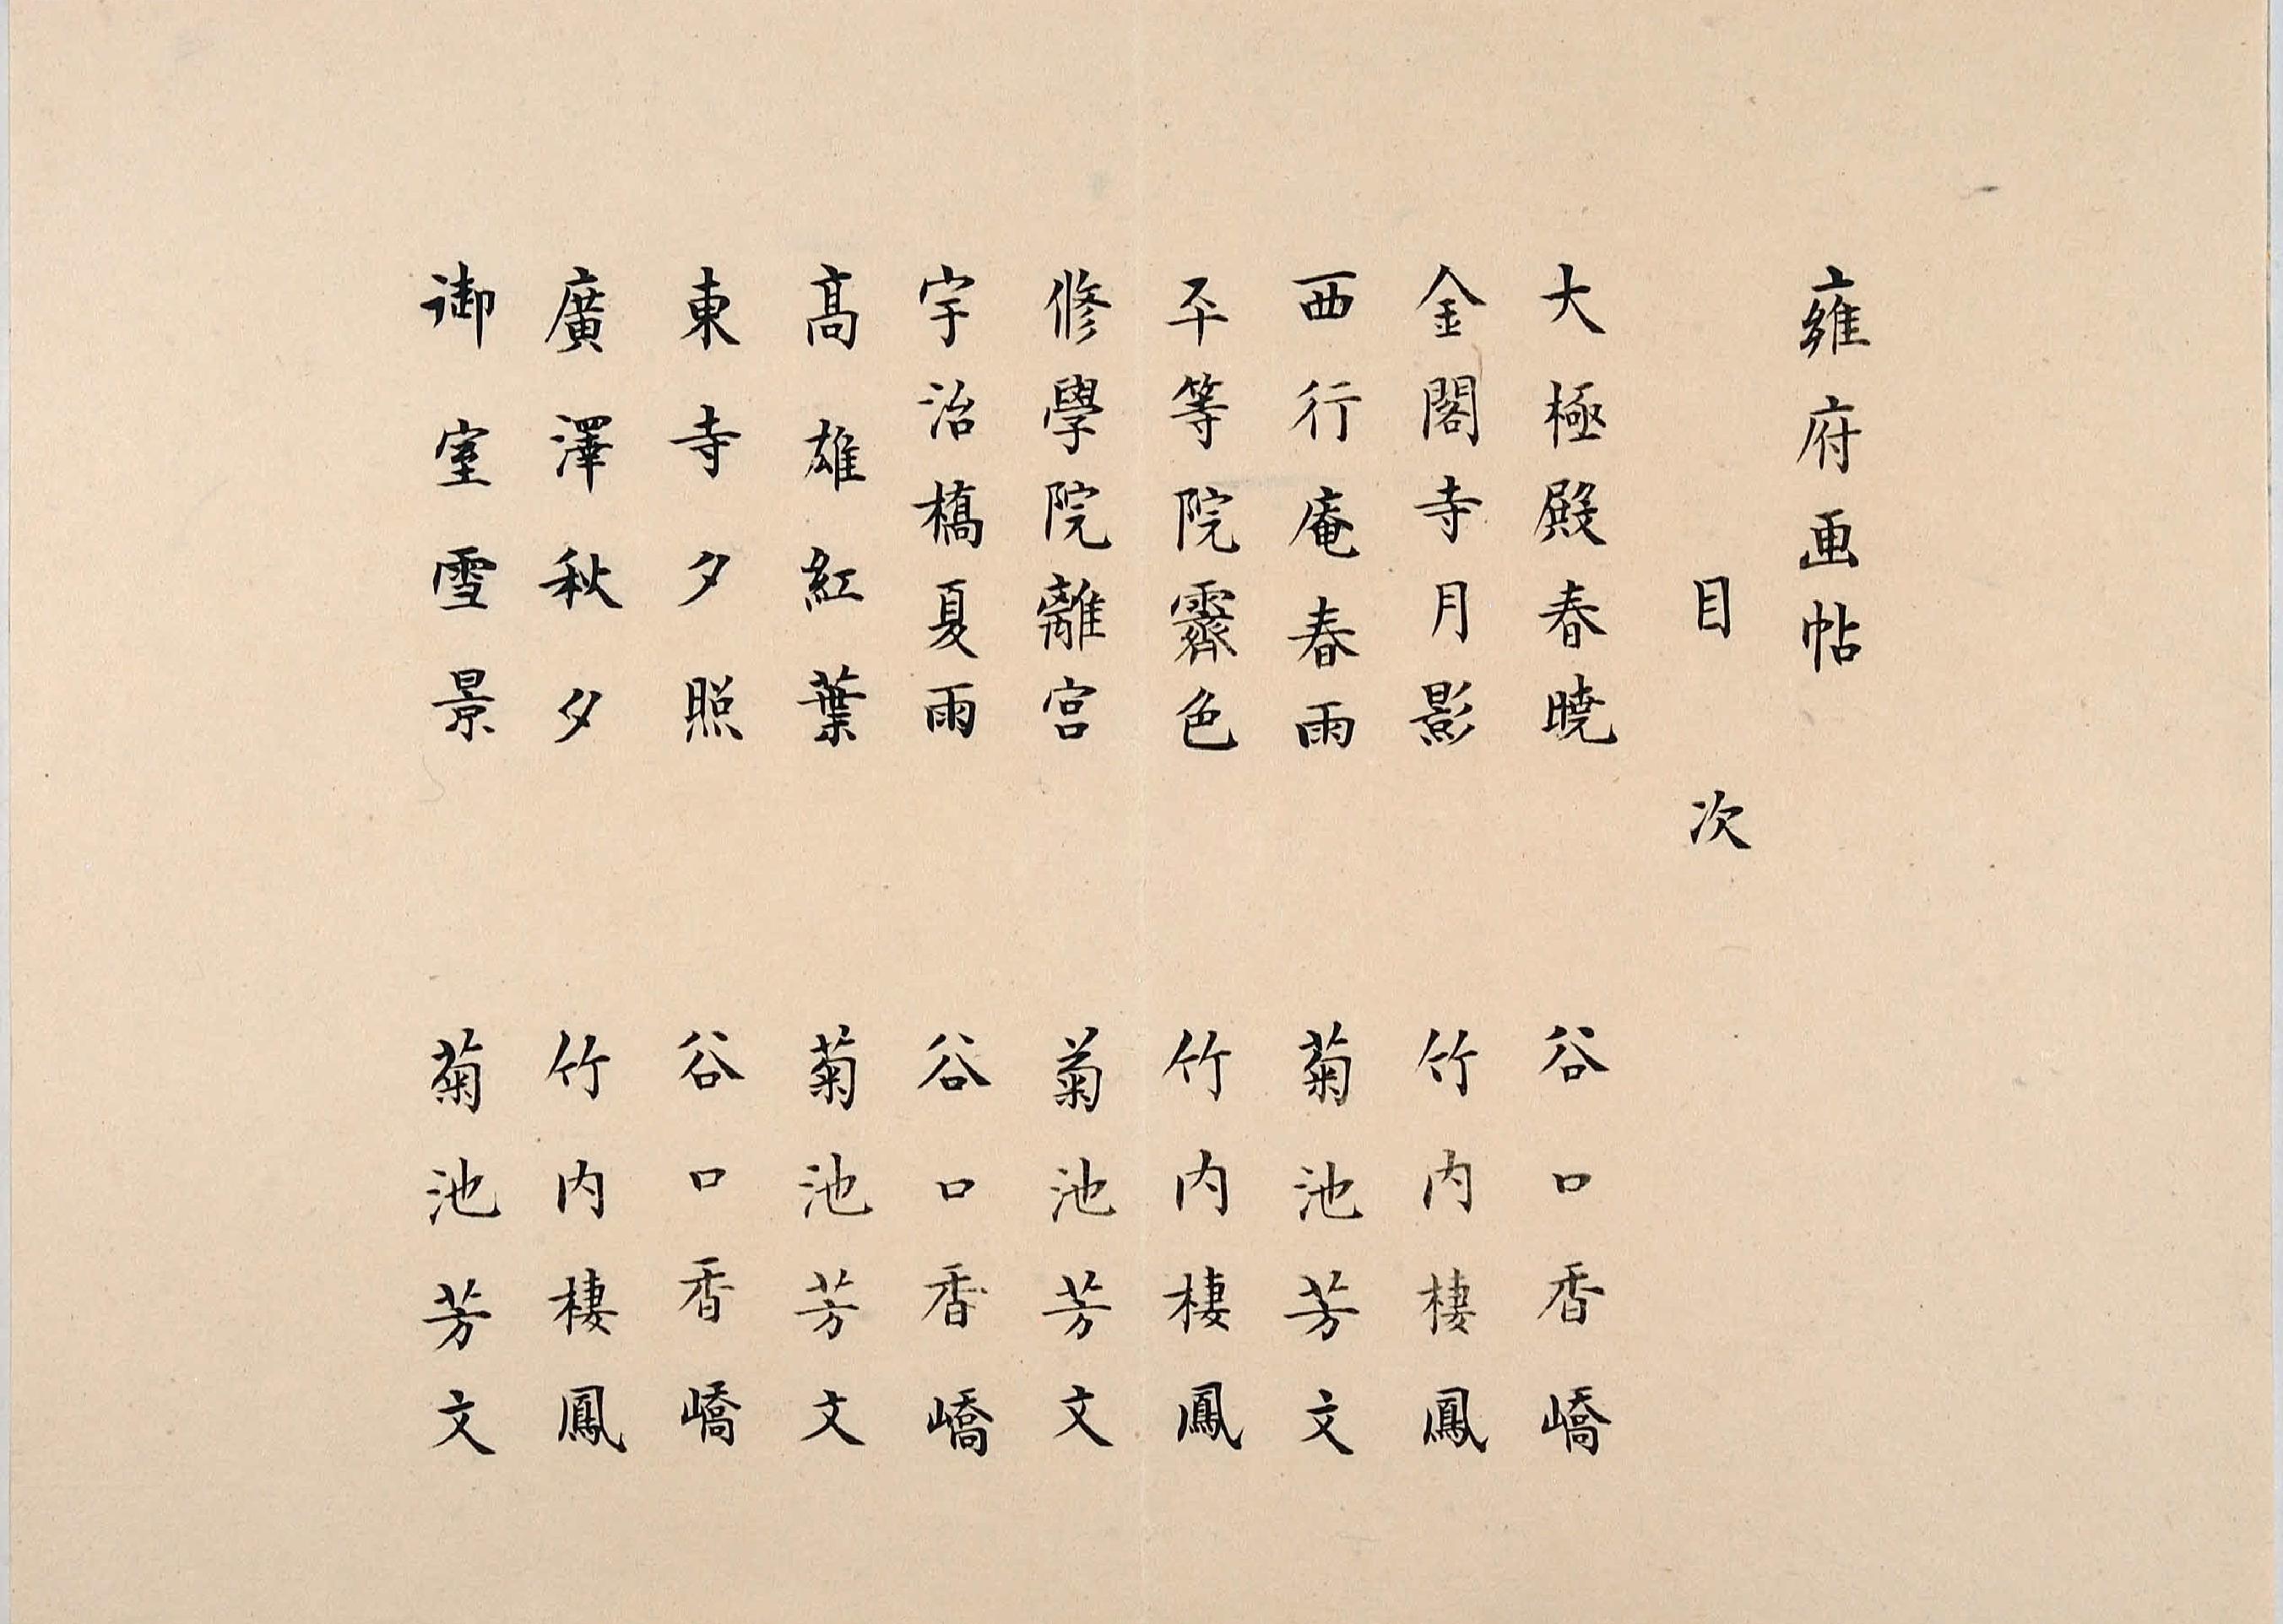 雍府画帖
目次
大極殿春曉 谷口香嶠
金閣寺月影 竹内棲鳳
西行庵春雨 菊池芳文
平等院霽色 竹内棲鳳
修學院離宮 菊池芳文
宇治橋夏雨 谷口香嶠
髙雄紅葉 菊池芳文
東寺夕照 谷口香嶠
廣澤秋夕 竹内棲鳳
御室雪景 菊池芳文